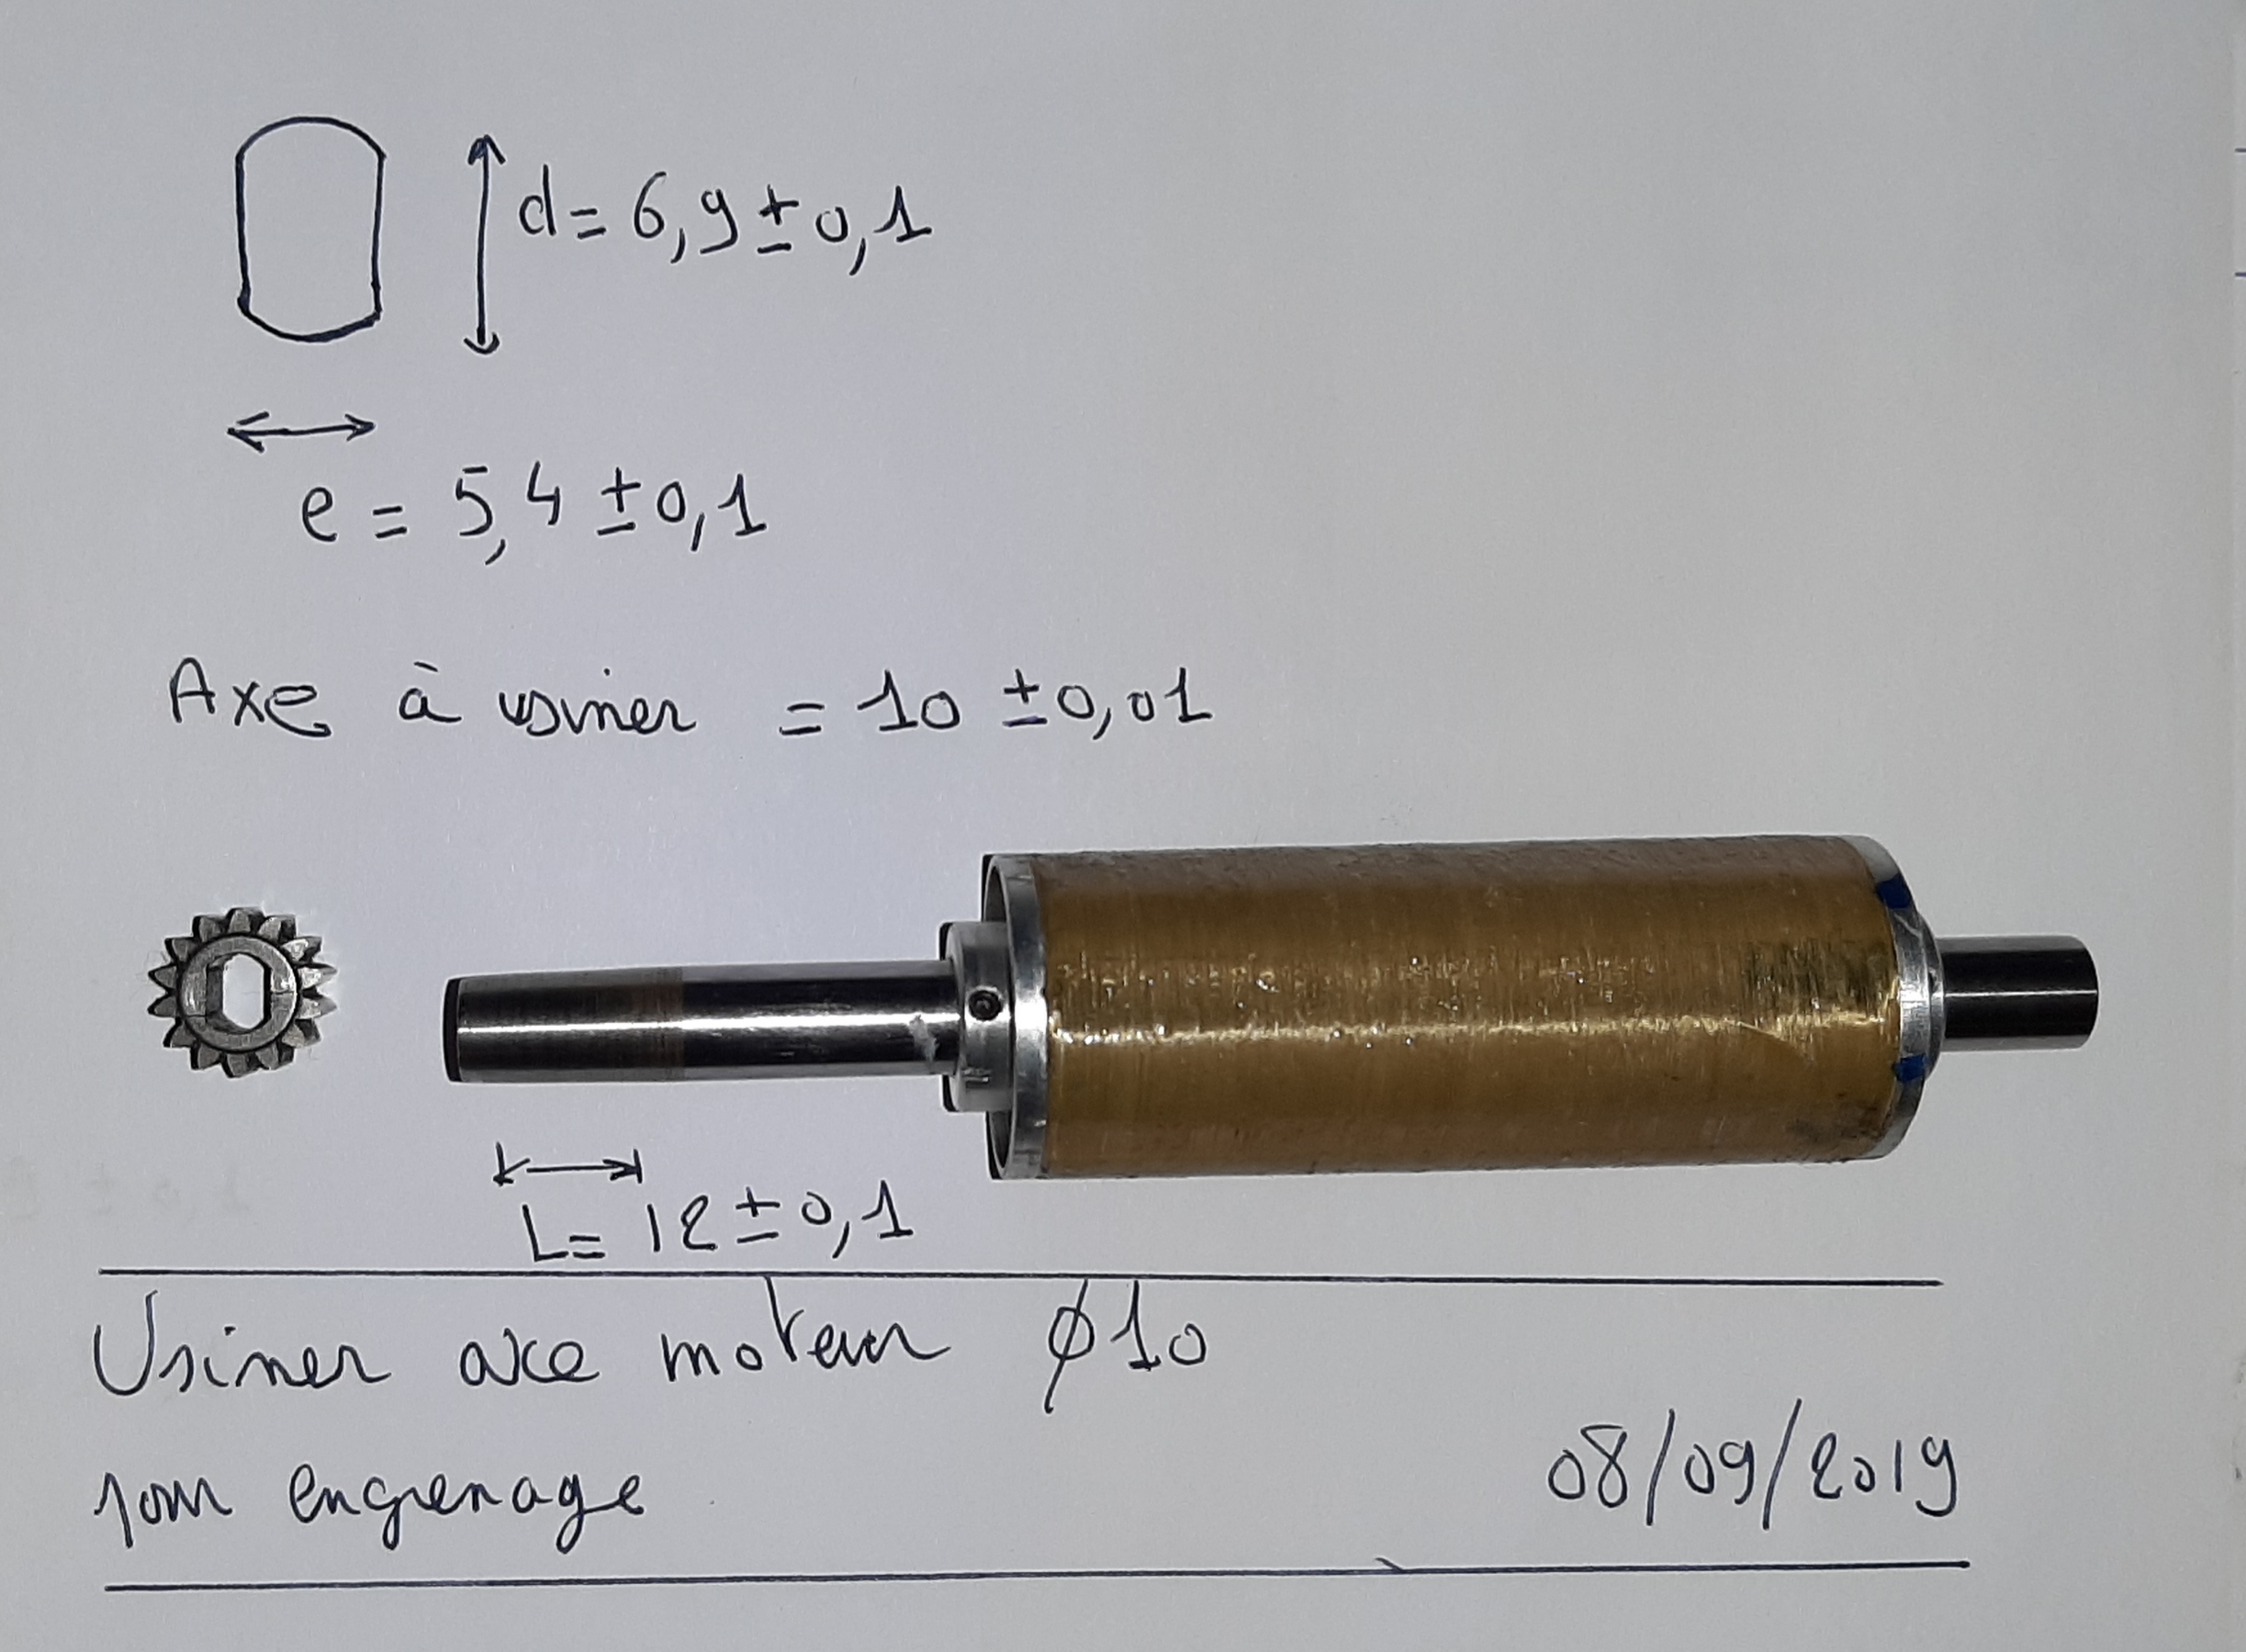 d = 6,9 ± 0,1
e = 5,4 ± 0,1
Axe à usiner = 10 ± 0,01
L = 12 ± 0,1
Usiner axe moteur ø10
pour engrenage
08/09/2019